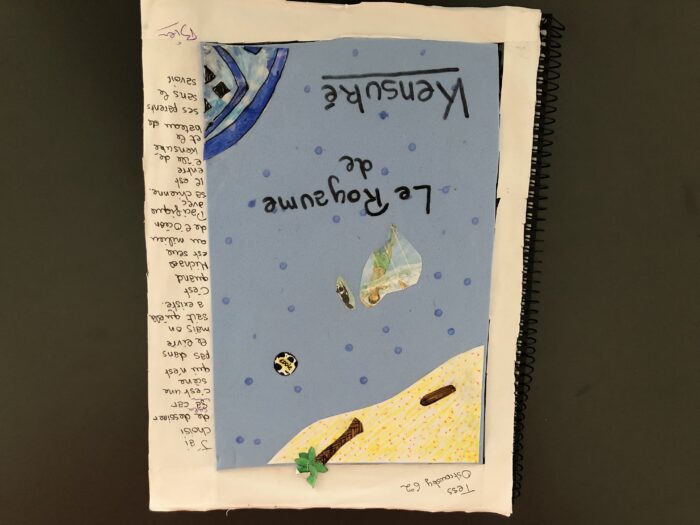 Tess
62
J'ai
choisi
de dessiner
ça car
c'est une
sène
qui n'est
pas dans
le livre
mais on
sait qu'elle
a existé.
C'est
quand
Michael
est seul
au milieu
de l'Océan
Pacifique
avec
sa chienne.
Il est
entre
l'île de
Kensuké
et le
bateau de
ses parents
sans le
savoir
Le Royaume
de
Kensuké
Bien